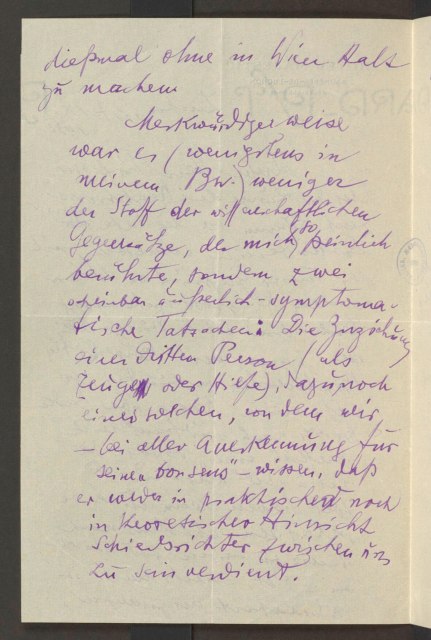 dießmal ohne in Wien Halt
zu machen
Merkwürdigerweise
war es (wenigstens in
meinem Bw.) weniger
der Stoff der wissenschaftlichen
Gegensätze, der mich so peinlich
berührte, sondern zwei
scheinbar äußerlich-symptoma-
tische Tatsachen: Die Zuziehung
einer dritten Person (als
Zeuge oder Hilfe), dazu noch
eines solchen, von dem wir
– bei aller Anerkennung für
seinen "bon sens" – wissen, daß
er weder in praktischer noch
in theoretischer Hinsicht
Schiedsrichter zwischen uns
zu sein verdient.